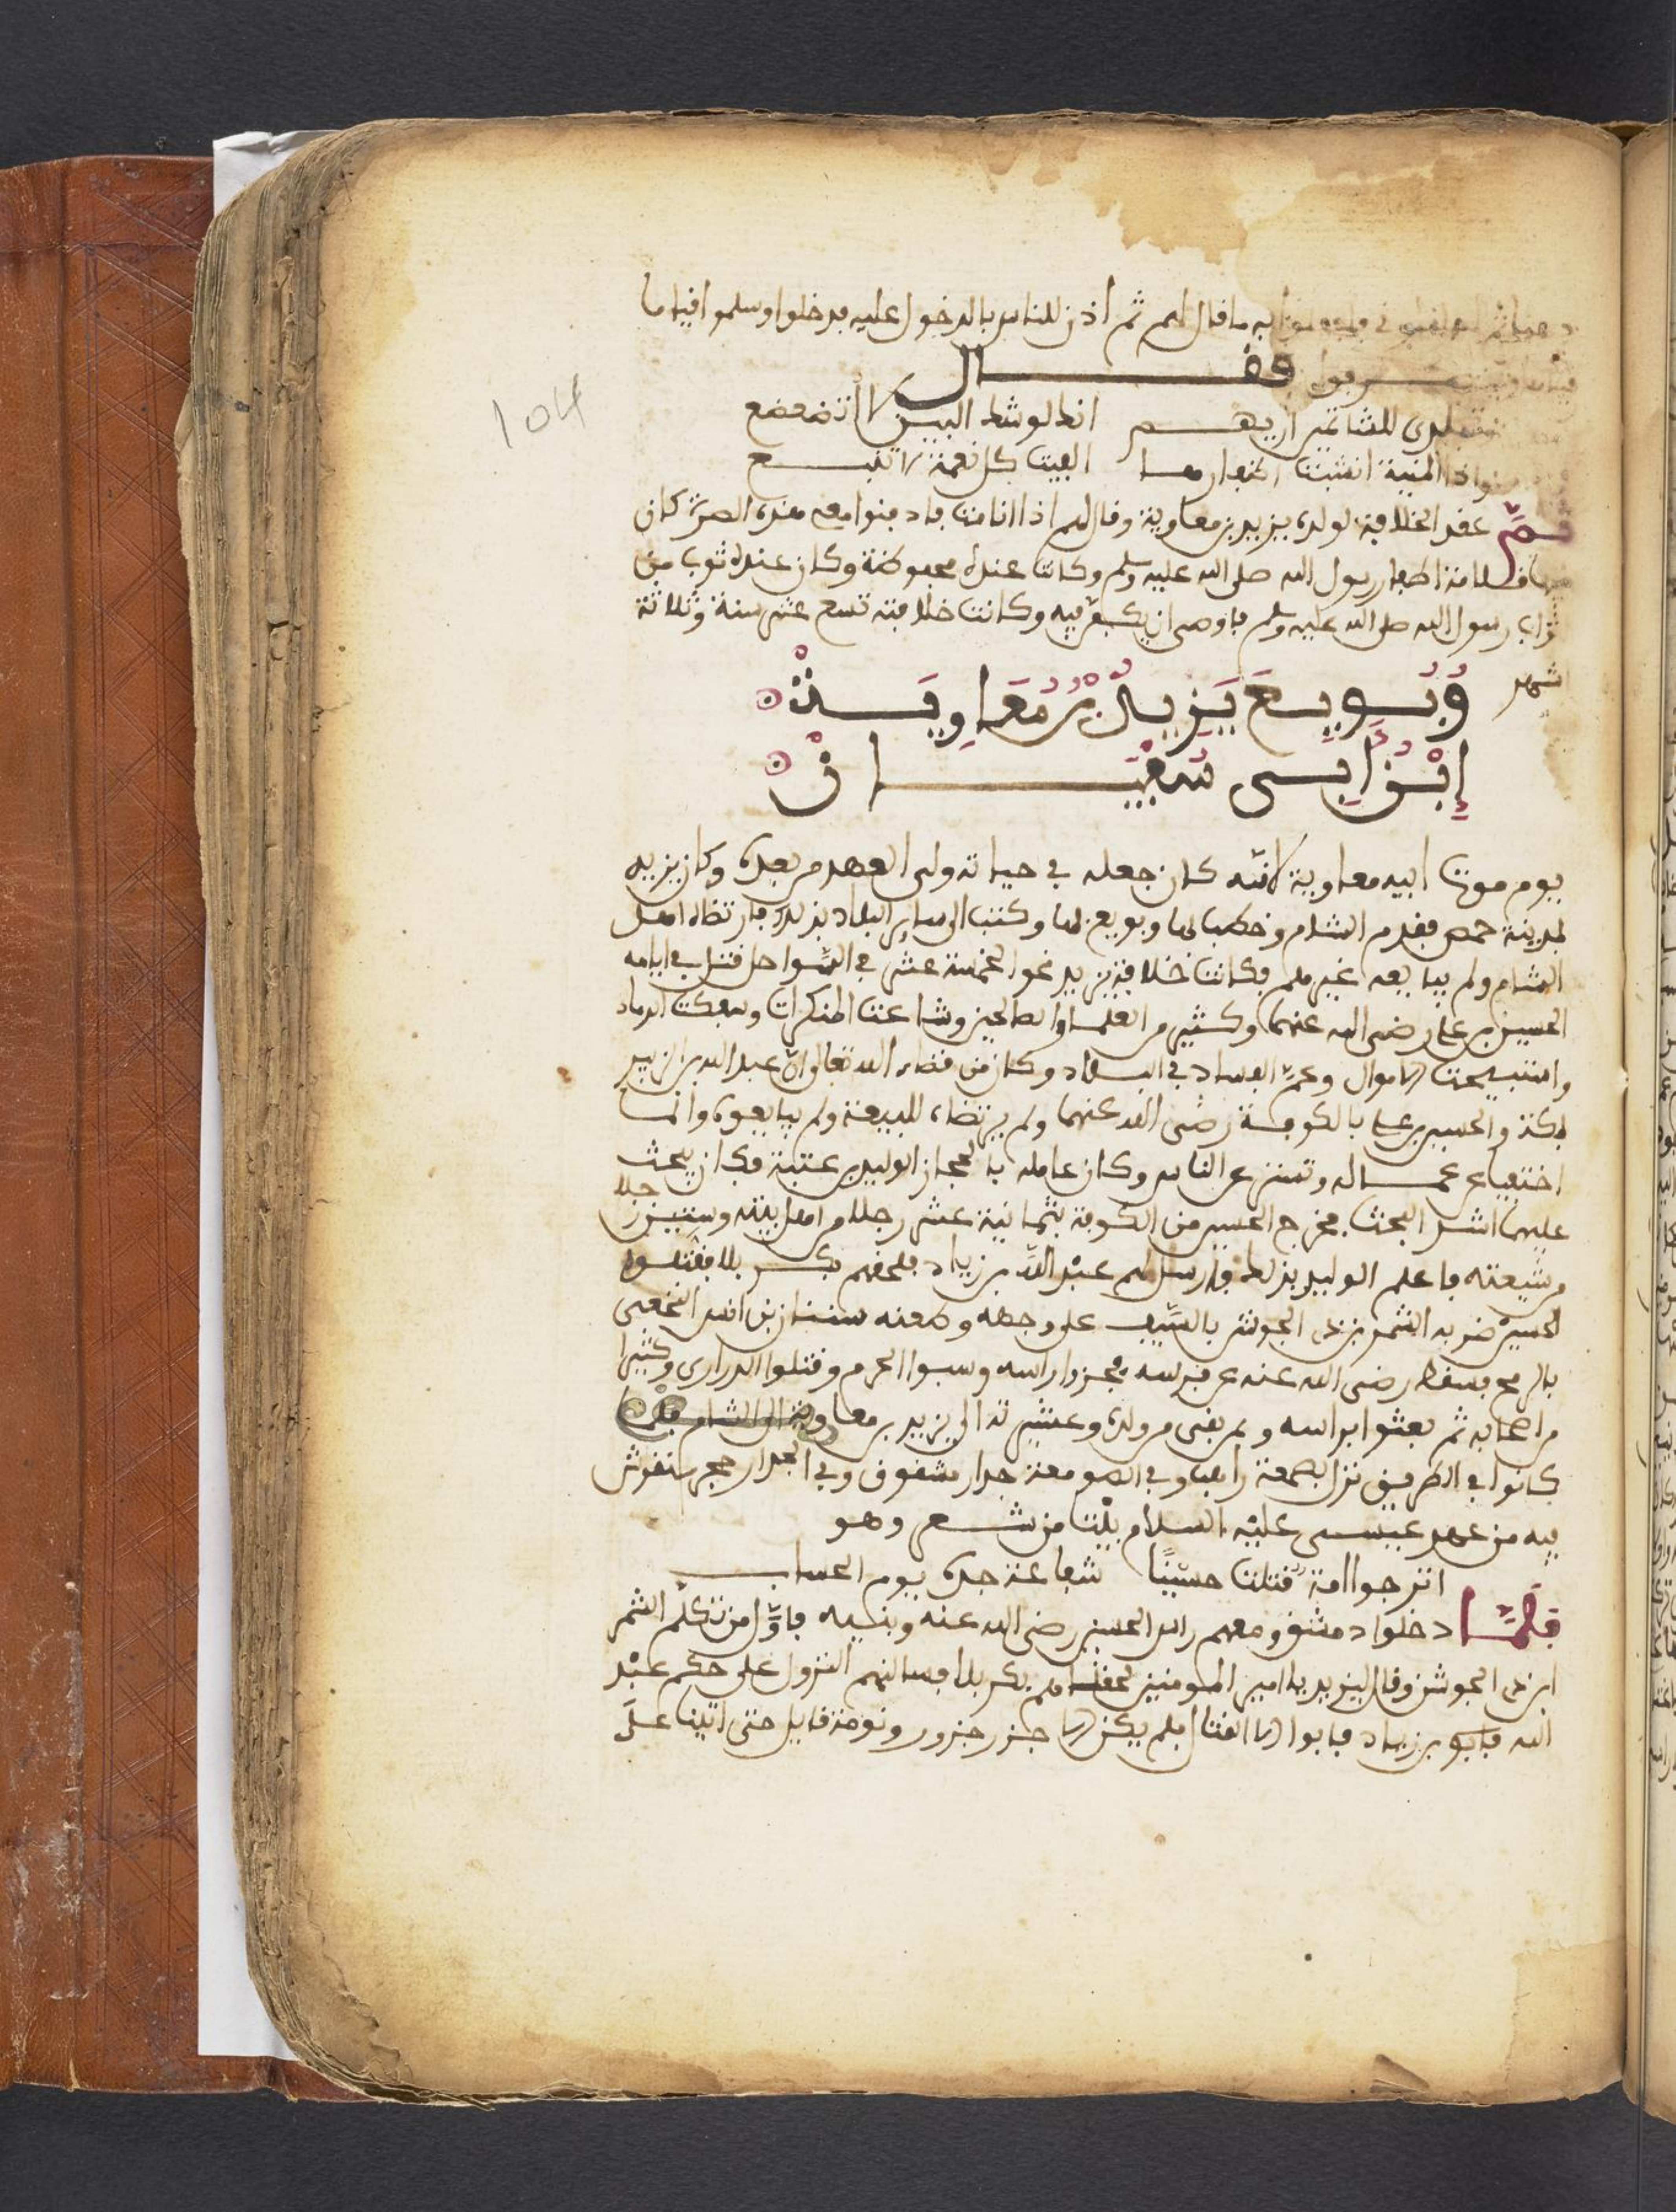 ما قال لهم ثم اذن للناس بالدخول عليه فدخلوا وسلموا قياما
فقال
للشامتين اريهم انى لريب لا اتضعضع
واذا المنية انشبت اظفارها الفيت كل تميمة لا تنفع
ثم عقد الخلافة لولده يزيد بن معاوية وقال لهم اذا انا مت فادفنوا معى هذه الصرة كان
فيها قلامة اظفار رسول الله صلى الله عليه وسلم وكانت عنده محفوظة وكان عنده ثوب من
ثواب رسول الله صلى الله عليه وسلم فاوصى ان يكفن فيه وكانت خلافته تسع عشر سنة وثلاثة
شهر
وبويع يزيد بن معاوية
ابن ابى سفيان
يوم موت ابيه معاوية لانه كان جعله في حياته ولى العهد من بعده وكان يزيد
بمدينة حمص فقدم الشام وخطب لها وبويع لها وكتب الى ساير البلاد بذلك فارتضاه اهل
الشام ولم يبايعه غيرهم فكانت خلافة يزيد نحو الخمسة عشر في السواحل قتل في ايامه
الحسين بن على رضى الله عنهما وكثير من العلما والصالحين وشاعت المنكرات وسفكت الدماء
واستبيحت الاموال وعم الفساد في البلاد وكان من قضاء الله تعالى ان عبد الله بن الزبير
بمكة والحسين بن على بالكوفة رضى الله عنهما ولم يرتضاه للبيعة ولم يبايعوه وانما
اختفيا عن عماله وتستر عن الناس وكان عامله بالحجاز الوليد بن عتبة فكان يبحث
عليهما اشد البحث فخرج الحسين من الكوفة بثمانية عشر رجلا من اهل بيته وستين رجلا
من شيعته فاعلم الوليد بذلك فارسل لهم عبد الله بن زياد فلحقهم بكربلا فقتلوا
الحسين ضربه الشمر بن ذى الجوشن بالسيف على وجهه وطعنه سنان بن انس النخعى
بالرمح فسقط رضى الله عنه عن فرسه فجزوا راسه وسبوا الحرم وقتلوا الذرارى وكثيرا
من اصحابه ثم بعثوا براسه ومن بقى من ولده وعشيرته الى يزيد بن معاوية الى الشام فلما
كانوا في الطريق نزل بصمعة راهب وفي الصومعة جدار مشقوق وفي الجدار حجر منقوش
فيه من عهد عيسى عليه السلام بيت من شعر وهو
اترجوا امة قتلت حسينا شفاعة جده يوم الحساب
فلما دخلوا دمشق ومعهم راس الحسين رضى الله عنه وبنيه فاول من تكلم الشمر
ابن ذى الجوشن وقال ليزيد يا امير المومنين لحقناهم بكربلا فسالنهم النزول على حكم عبد
الله فابو بن زياد فابوا الا القتال فلم يكن الا جزر جزور ونومة قايل حتى اتينا على
104